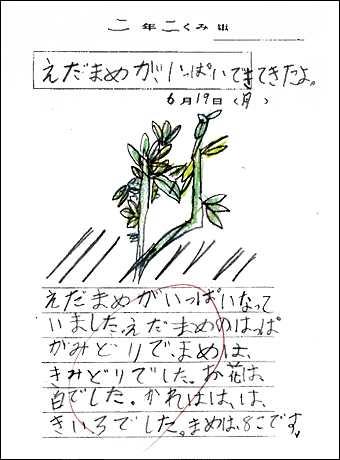 二年二くみ
えだまめが、いっぱいできてきたよ。
6月19日（月）
えだまめがいっぱいなって
いました。えだまめのはっぱ
がみどりで、まめは、
きみどりでした。お花は、
白でした。かれはは、は、
きいろでした。まめは、8こです。